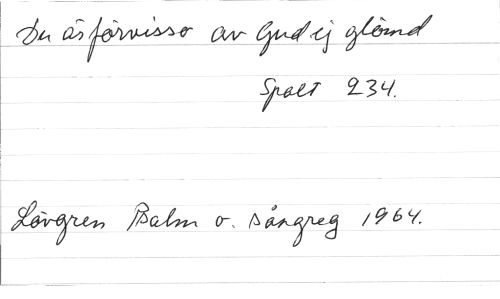 Du äs förvisso av Gud ej glömd
Spalt 234.
Lövgren Psalm o. sångreg 1964.